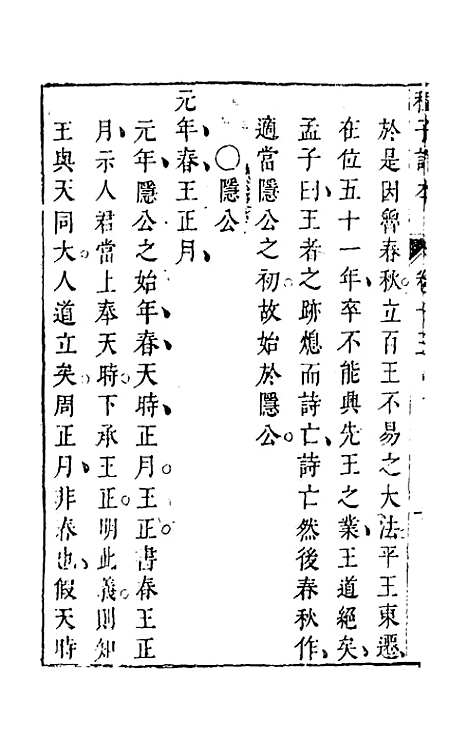 於是因魯春秋立百王不易之大法平王東遷
在位五十一年卒不能興先王之業王道絕矣
孟子曰王者之跡熄而詩亡詩亡然後春秋作
適當隱公之初故始於隱公
○隱公
元年春王正月
元年隱公之始年春天時正月王正書春王正
月示人君當上奉天時下承王正明此義則知
王與天同大人道立矣周正月非春也假天時